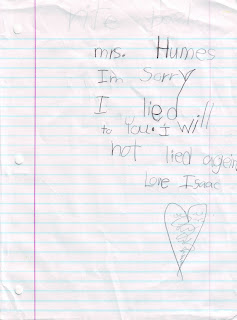 mrs. Humes
I'm Sorry
I lied
to You. I will
not lied
Love Isaac